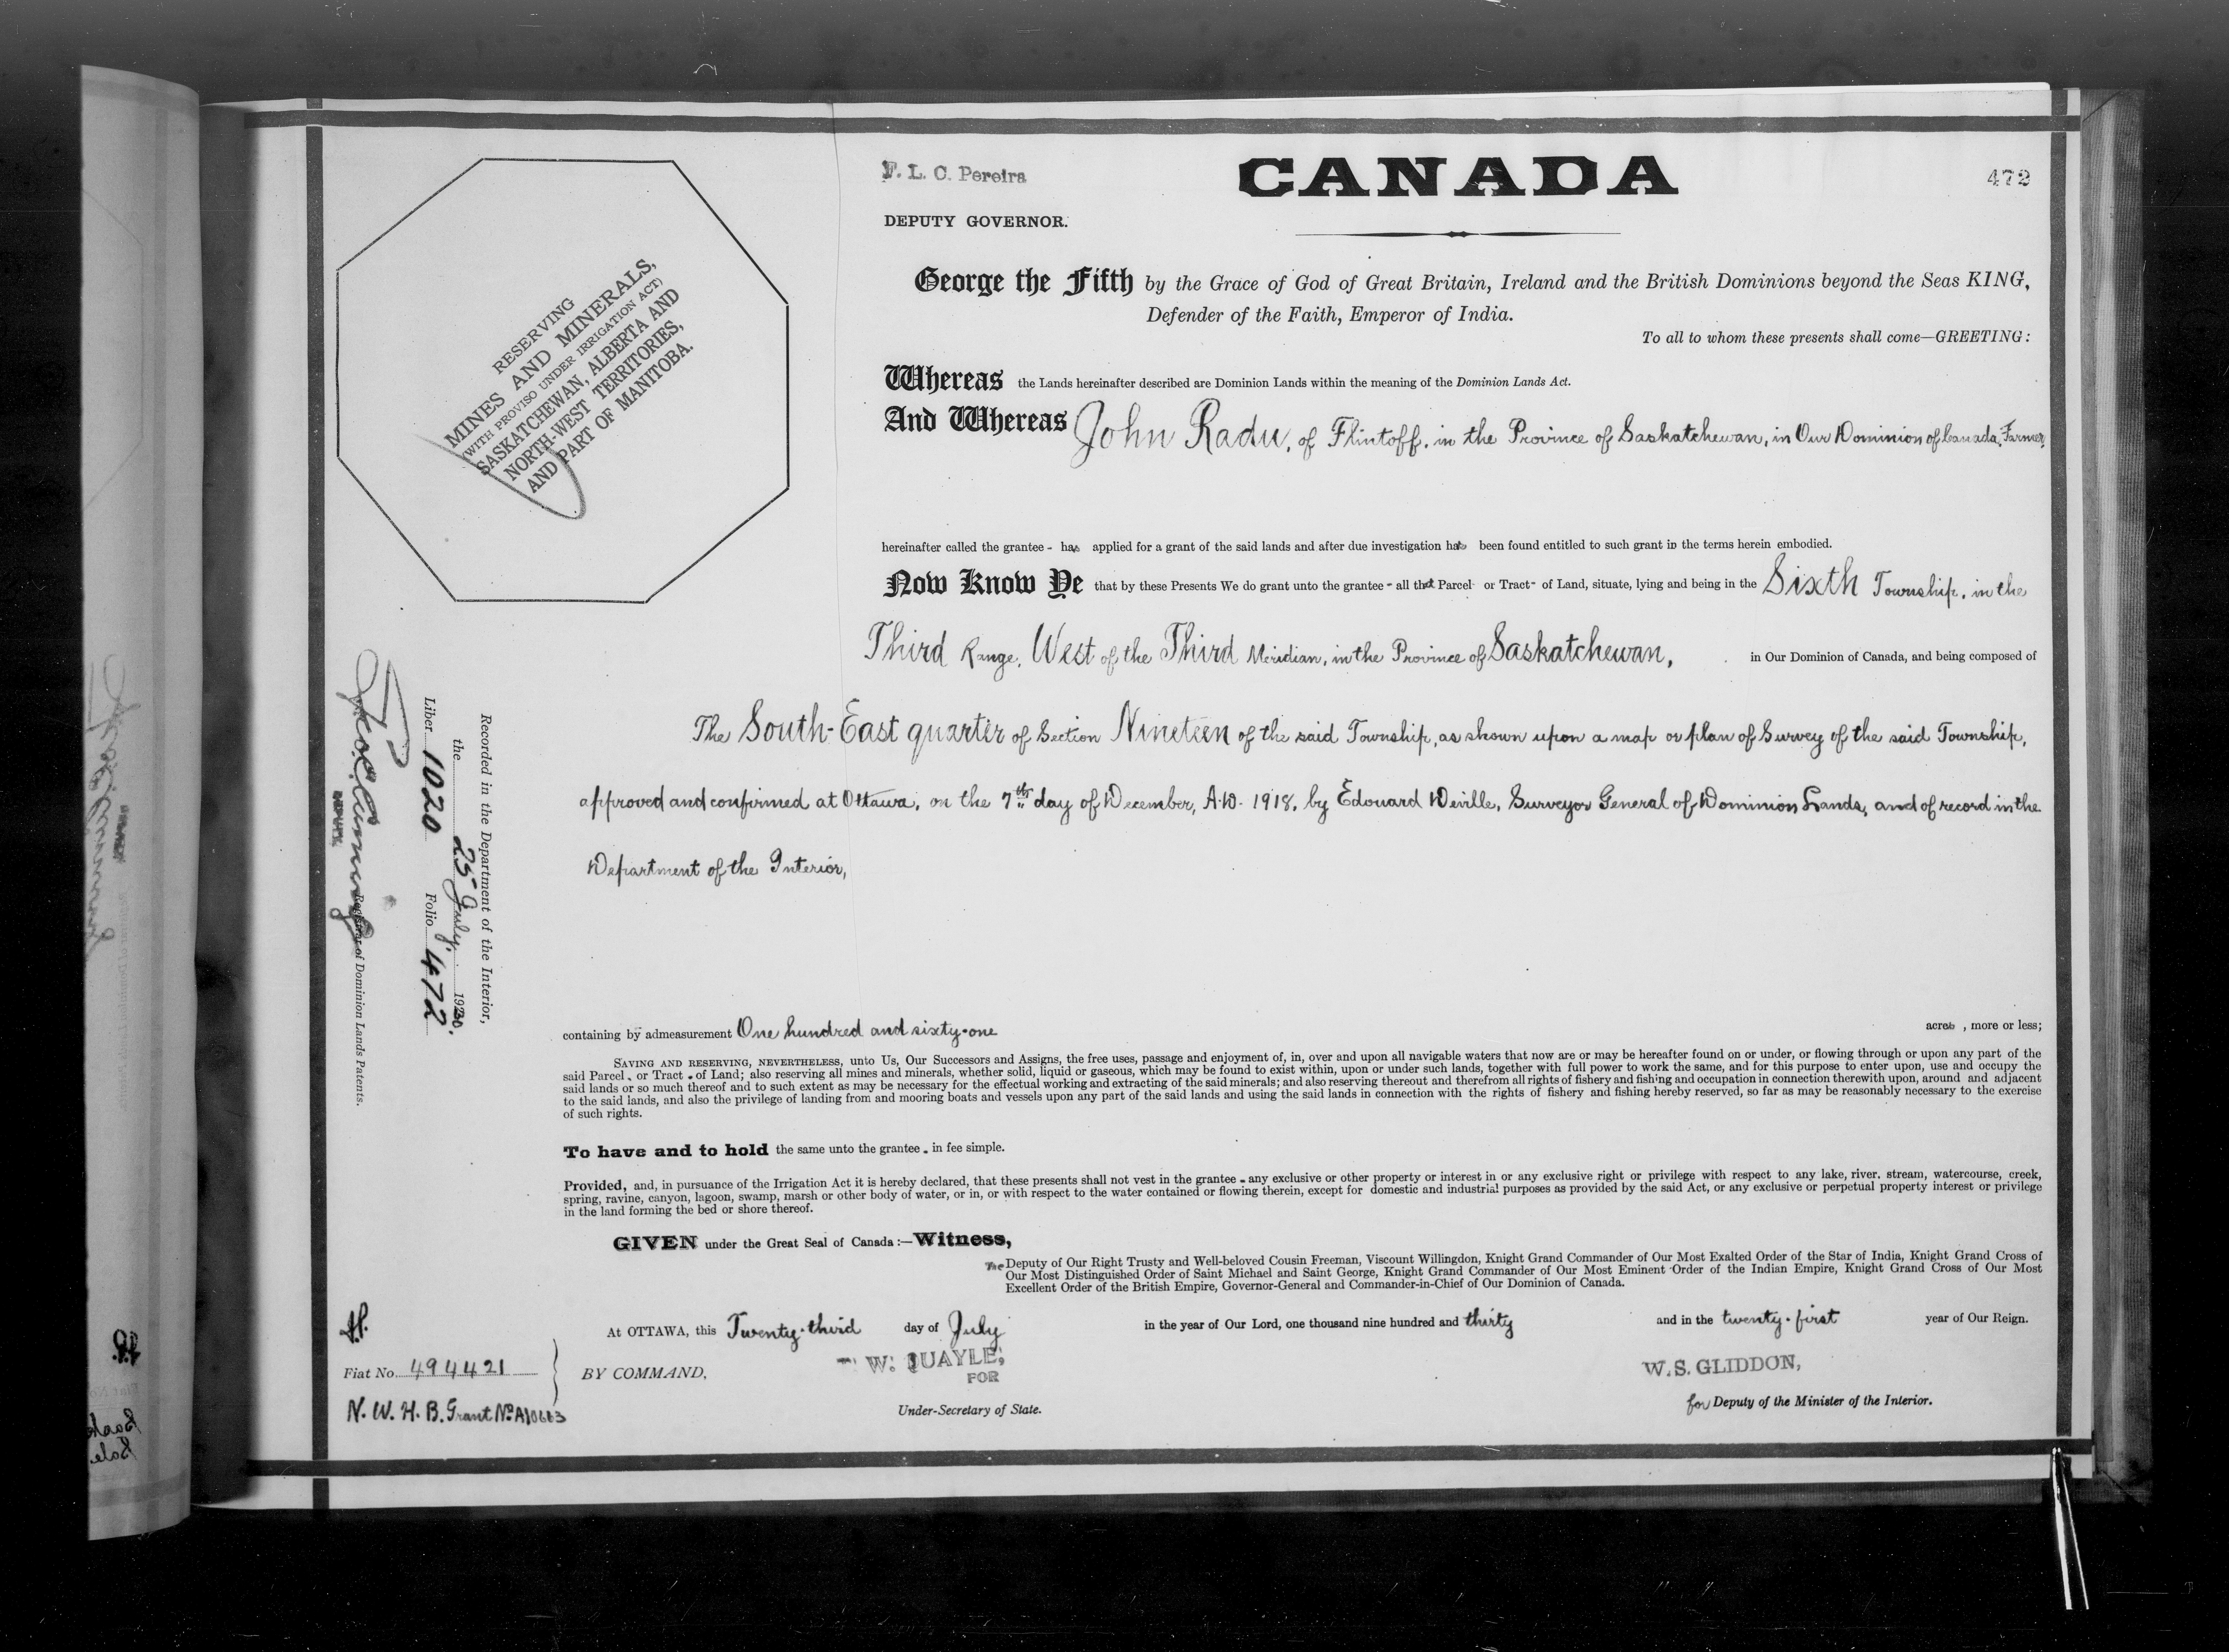 F. L. C. Pereira
DEPUTY GOVERNOR.
CANADA
472
RESERVING
MINES AND MINERALS,
(WITH PROVISO UNDER IRRIGATION ACT)
SASKATCHEWAN, ALBERTA AND
NORTH-WEST TERRITORIES,
AND PART OF MANITOBA.
George the Fifth by the Grace of God of Great Britain, Ireland and the British Dominions beyond the Seas KING,
Defender of the Faith, Emperor of India.
To all to whom these presents shall come—GREETING:
Whereas the Lands hereinafter described are Dominion Lands within the meaning of the Dominion Lands Act.
And Whereas John Radu, of Flintoff, in the Province of Saskatchewan, in Our Dominion of Canada, Farmer,
hereinafter called the grantee - has applied for a grant of the said lands and after due investigation has been found entitled to such grant in the terms herein embodied.
Now Know Ye that by these Presents We do grant unto the grantee - all that Parcel or Tract - of Land, situate, lying and being in the Sixth Township, in the
Third Range, West of the Third Meridian, in the Province of Saskatchewan, in Our Dominion of Canada, and being composed of
The South-East quarter of Section Nineteen of the said Township, as shown upon a map or plan of Survey of the said Township,
approved and confirmed at Ottawa, on the 7th day of December, A.D. 1918, by Edouard Deville, Surveyor General of Dominion Lands, and of record in the
Department of the Interior,
containing by admeasurement One hundred and sixty-one acres , more or less;
SAVING AND RESERVING, NEVERTHELESS, unto Us, Our Successors and Assigns, the free uses, passage and enjoyment of, in, over and upon all navigable waters that now are or may be hereafter found on or under, or flowing through or upon any part of the
said Parcel - or Tract - of Land; also reserving all mines and minerals, whether solid, liquid or gaseous, which may be found to exist within, upon or under such lands, together with full power to work the same, and for this purpose to enter upon, use and occupy the
said lands or so much thereof and to such extent as may be necessary for the effectual working and extracting of the said minerals; and also reserving thereout and therefrom all rights of fishery and fishing and occupation in connection therewith upon, around and adjacent
to the said lands, and also the privilege of landing from and mooring boats and vessels upon any part of the said lands and using the said lands in connection with the rights of fishery and fishing hereby reserved, so far as may be reasonably necessary to the exercise
of such rights.
To have and to hold the same unto the grantee - in fee simple.
Provided, and, in pursuance of the Irrigation Act it is hereby declared, that these presents shall not vest in the grantee - any exclusive or other property or interest in or any exclusive right or privilege with respect to any lake, river, stream, watercourse, creek,
spring, ravine, canyon, lagoon, swamp, marsh or other body of water, or in, or with respect to the water contained or flowing therein, except for domestic and industrial purposes as provided by the said Act, or any exclusive or perpetual property interest or privilege
in the land forming the bed or shore thereof.
GIVEN under the Great Seal of Canada:—Witness,
The Deputy of Our Right Trusty and Well-beloved Cousin Freeman, Viscount Willingdon, Knight Grand Commander of Our Most Exalted Order of the Star of India, Knight Grand Cross of
Our Most Distinguished Order of Saint Michael and Saint George, Knight Grand Commander of Our Most Eminent Order of the Indian Empire, Knight Grand Cross of Our Most
Excellent Order of the British Empire, Governor-General and Commander-in-Chief of Our Dominion of Canada.
At OTTAWA, this Twenty-third day of July in the year of Our Lord, one thousand nine hundred and thirty and in the twenty-first year of Our Reign.
BY COMMAND,
W. QUAYLE,
FOR
Under-Secretary of State.
W. S. GLIDDON,
for Deputy of the Minister of the Interior.
Recorded in the Department of the Interior,
the 25 July, 1930.
Liber 1020 Folio 472
Registrar of Dominion Lands Patents.
Fiat No. 494421
N. W. H. B. Grant No.